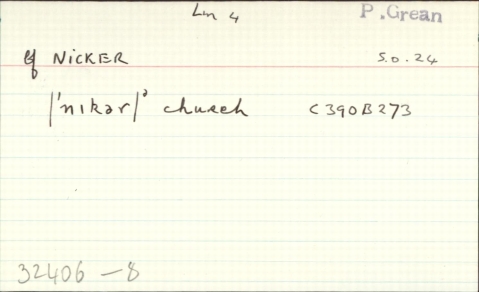 Lm 4
P. Grean
cf NICKER
S.O. 24
|ˈnɪkər|ˀ church
C390B273
32406 – 8